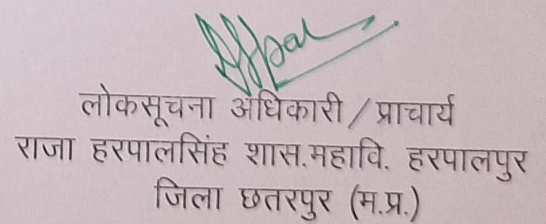 लोकसूचना अधिकारी / प्राचार्य
राजा हरपालसिंह शास.महावि. हरपालपुर
जिला छतरपुर (म.प्र.)